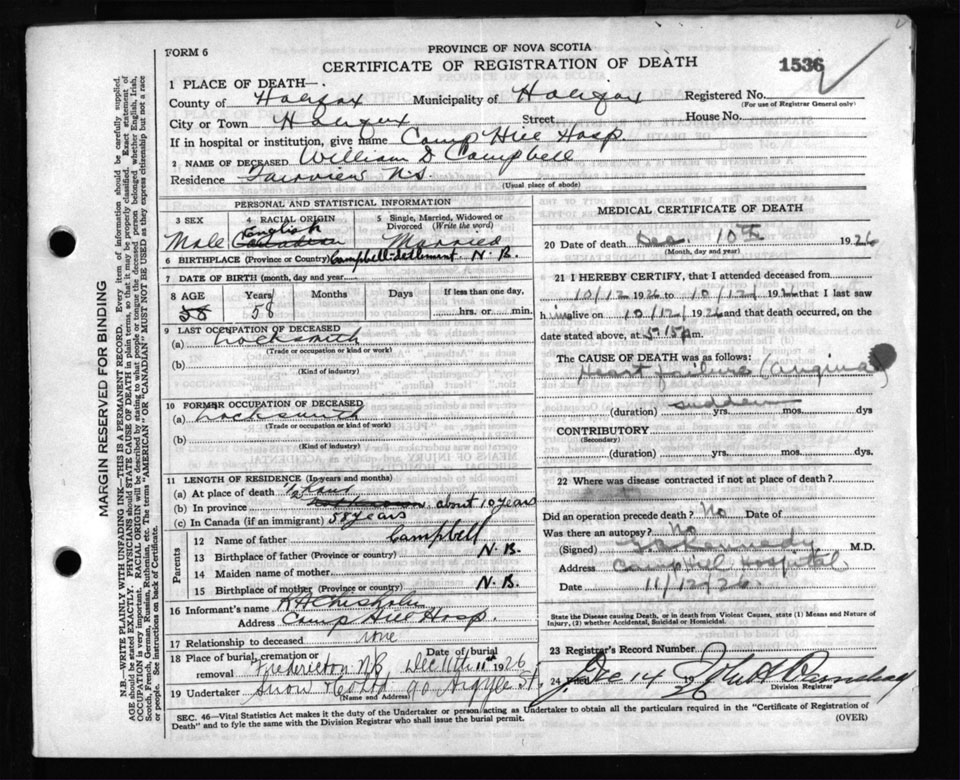 FORM 6
PROVINCE OF NOVA SCOTIA
CERTIFICATE OF REGISTRATION OF DEATH
1536
1 PLACE OF DEATH—
County of Halifax Municipality of Halifax Registered No.
(For use of Registrar General only)
City or Town Halifax Street House No.
If in hospital or institution, give name Camp Hill Hosp.
2 NAME OF DECEASED William D Campbell
Residence Fairview N.S.
(Usual place of abode)
PERSONAL AND STATISTICAL INFORMATION
3 SEX 4 RACIAL ORIGIN 5 Single, Married, Widowed or Divorced (Write the word)
English
Male Canadian Married
6 BIRTHPLACE (Province or Country) Campbell-Settlement N.B.
7 DATE OF BIRTH (month, day and year)
8 AGE Years Months Days If less than one day,
58 58 hrs. or min.
9 LAST OCCUPATION OF DECEASED
(a) Locksmith
(Trade or occupation or kind or work)
(b)
(Kind of industry)
10 FORMER OCCUPATION OF DECEASED
(a) Locksmith
(Trade or occupation or kind or work)
(b)
(Kind of industry)
11 LENGTH OF RESIDENCE (In years and months)
(a) At place of death 1/2 hour
(b) In province about 10 years
(c) In Canada (if an immigrant) 58 years
Parents
12 Name of father Campbell
13 Birthplace of father (Province or country) N.B.
14 Maiden name of mother
15 Birthplace of mother (Province or country) N.B.
16 Informant's name
Address Camp Hill Hosp.
17 Relationship to deceased none
18 Place of burial, cremation or removal Fredericton NB Date of burial Dec 11th 11 1926
19 Undertaker Snow & Co Ltd 90 Argyle St.
(Name and Address)
MEDICAL CERTIFICATE OF DEATH
20 Date of death Dec. 10th 1926
(Month, day and year)
21 I HEREBY CERTIFY, that I attended deceased from
10/12 1926 to 10/12/ 1926 that I last saw
him alive on 10/12/ 1926 and that death occurred, on the
date stated above, at m.
The CAUSE OF DEATH was as follows:
Heart failure (angina)
sudden
(duration) yrs. mos. dys
CONTRIBUTORY
(Secondary)
(duration) yrs. mos. dys
22 Where was disease contracted if not at place of death?
Did an operation precede death? No Date of
Was there an autopsy? No
(Signed) Kennedy M.D.
Address Camp Hill Hospital
Date 11/12/26.
State the Disease causing Death, or in death from Violent Causes, state (1) Means and Nature of Injury, (2) whether Accidental, Suicidal or Homicidal.
23 Registrar's Record Number
24 Dec 14 1926
Division Registrar
SEC. 46—Vital Statistics Act makes it the duty of the Undertaker or person acting as Undertaker to obtain all the particulars required in the "Certificate of Registration of
Death" and to fyle the same with the Division Registrar who shall issue the burial permit.
(OVER)
MARGIN RESERVED FOR BINDING
N.B.—WRITE PLAINLY WITH UNFADING INK—THIS IS A PERMANENT RECORD. Every item of information should be carefully supplied.
AGE should be stated EXACTLY. PHYSICIANS should STATE CAUSE OF DEATH in plain terms, so that it may be properly classified. Exact statement of
OCCUPATION is very important. RACIAL ORIGIN will be described by stating to what people or tongue the deceased person belonged whether English, Irish,
Scotch, French, German, Russian, Ruthenian, etc. The terms "AMERICAN" OR "CANADIAN" MUST NOT BE USED as they express citizenship but not a race
or people. See instructions on back of Certificate.